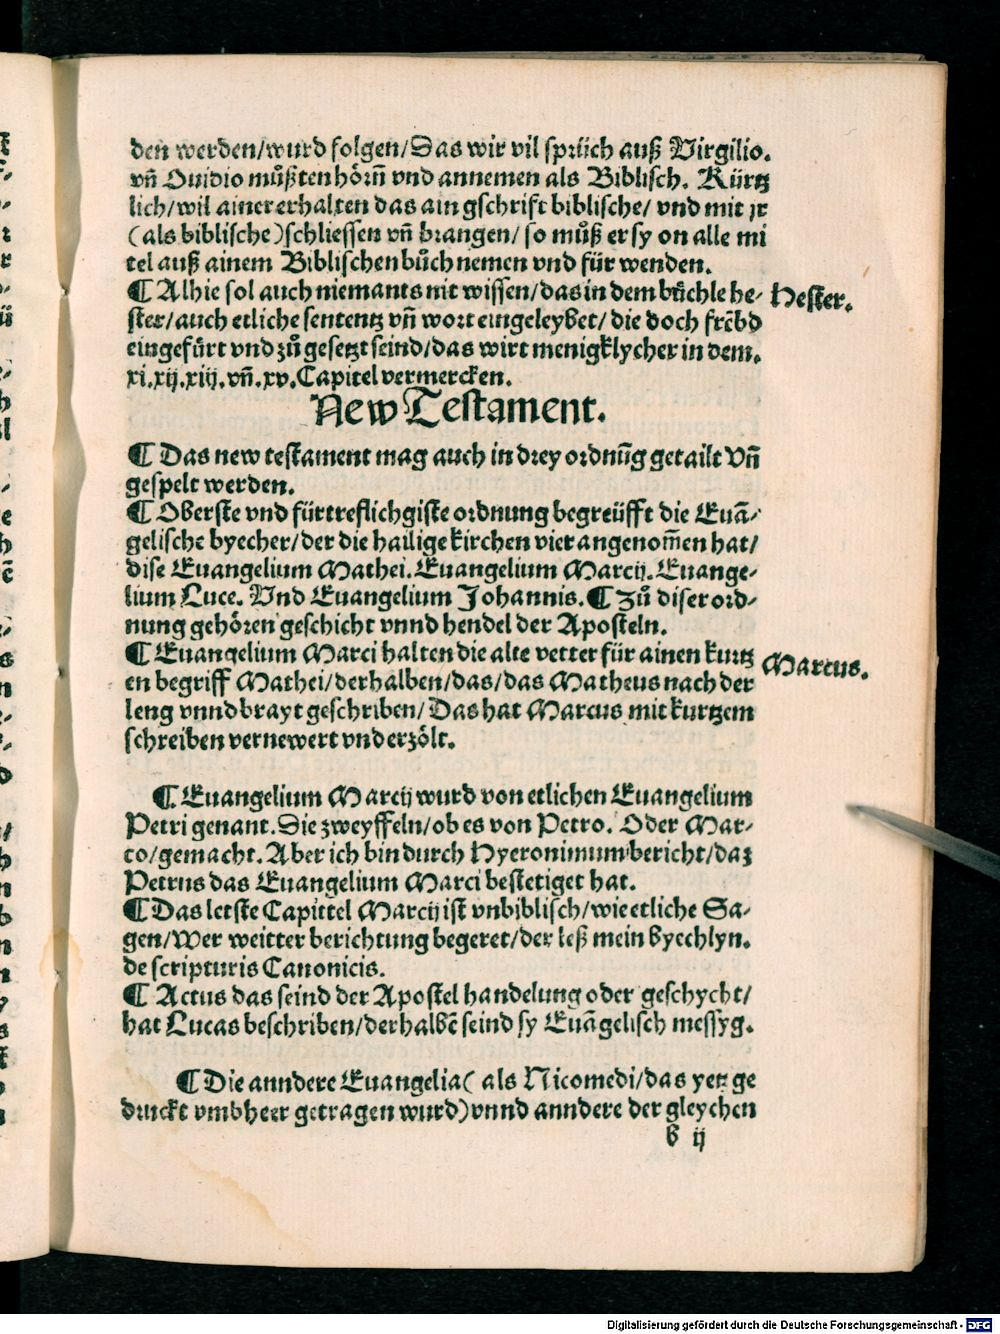 den werden/wurd folgen/Das wir vil sprüch auß Virgilio.
vñ Ouidio müßten hörñ vnd annemen als Biblisch. Kürtz
lich/wil ainer erhalten das ain gschrift biblische/ vnd mit jr
(als biblische)schliessen vñ brangen/ so můß er sy on alle mi
tel auß ainem Biblischen bůch nemen vnd für wenden.
¶ Alhie sol auch niemants nit wissen/das in dem büchle he-
Hester.
ster/auch etliche sententz vñ wort eingeleybet/ die doch frẽbd
eingefürt vnd zů gesetzt seind/das wirt menigklycher in dem.
xi.xij.xiij.vñ.xv.Capitel vermercken.
New Testament.
¶ Das new testament mag auch in drey ordnũg getailt vñ
gespelt werden.
¶ Oberste vnd fürtreflichgiste ordnung begreüfft die Euã-
gelische byecher/der die hailige kirchen vier angenom̃en hat/
dise Euangelium Mathei.Euangelium Marcij.Euange-
lium Luce. Vnd Euangelium Johannis.¶ Zů diser ord-
nung gehören geschicht vnnd hendel der Aposteln.
¶ Euangelium Marci halten die alte vetter für ainen kurtz
Marcus.
en begriff Mathei/derhalben/das/das Matheus nach der
leng vnnd brayt geschriben/ Das hat Marcus mit kurtzem
schreiben vernewert vnd erzölt.
¶ Euangelium Marcij wurd von etlichen Euangelium
Petri genant.Sie zweyffeln/ob es von Petro. Oder Mar-
co/gemacht.Aber ich bin durch Hyeronimum bericht/daz
Petrus das Euangelium Marci bestetiget hat.
¶ Das letste Capittel Marcij ist vnbiblisch/wie etliche Sa-
gen/Wer weitter berichtung begeret/der leß mein byechlyn.
de scripturis Canonicis.
¶ Actus das seind der Apostel handelung oder geschycht/
hat Lucas beschriben/derhalbẽ seind sy Euãgelisch messyg.
¶ Die anndere Euangelia( als Nicomedi/das yetz ge
druckt vmbheer getragen wurd)vnnd anndere der gleychen
b ij
Digitalisierung gefördert durch die Deutsche Forschungsgemeinschaft - DFG